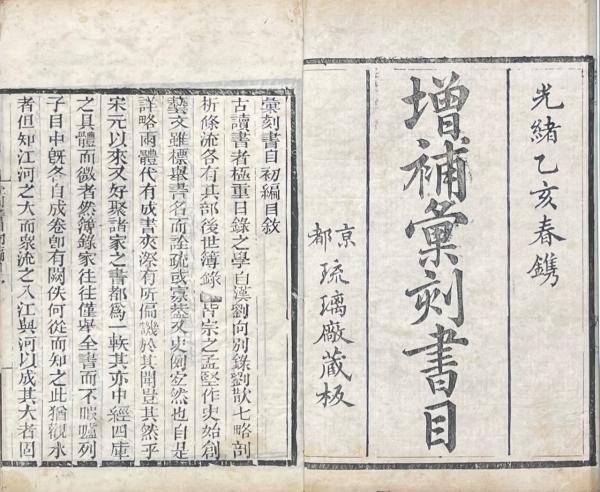 光緒乙亥春鐫
增補彙刻書目
京都
琉璃厰藏板
彙刻書目初編目敘
古讀書者極重目錄之學自漢劉向別錄劉歆七略剖
析條流各有其部後世簿錄皆宗之孟堅作史始創
藝文雖標舉書名而詮疏或寡歷史例宏然也自是
詳略兩體代有成書夾深有所偏譏於其間豈其然乎
宋元以來又好聚諸家之書都爲一軼其亦中經四庫
之具體而微者然簿錄家往往僅舉全書而不暇臚列
子目中旣各自成卷卽有闕佚何從而知之此猶觀水
者但知江河之大而衆流之入江與河以成其大者固